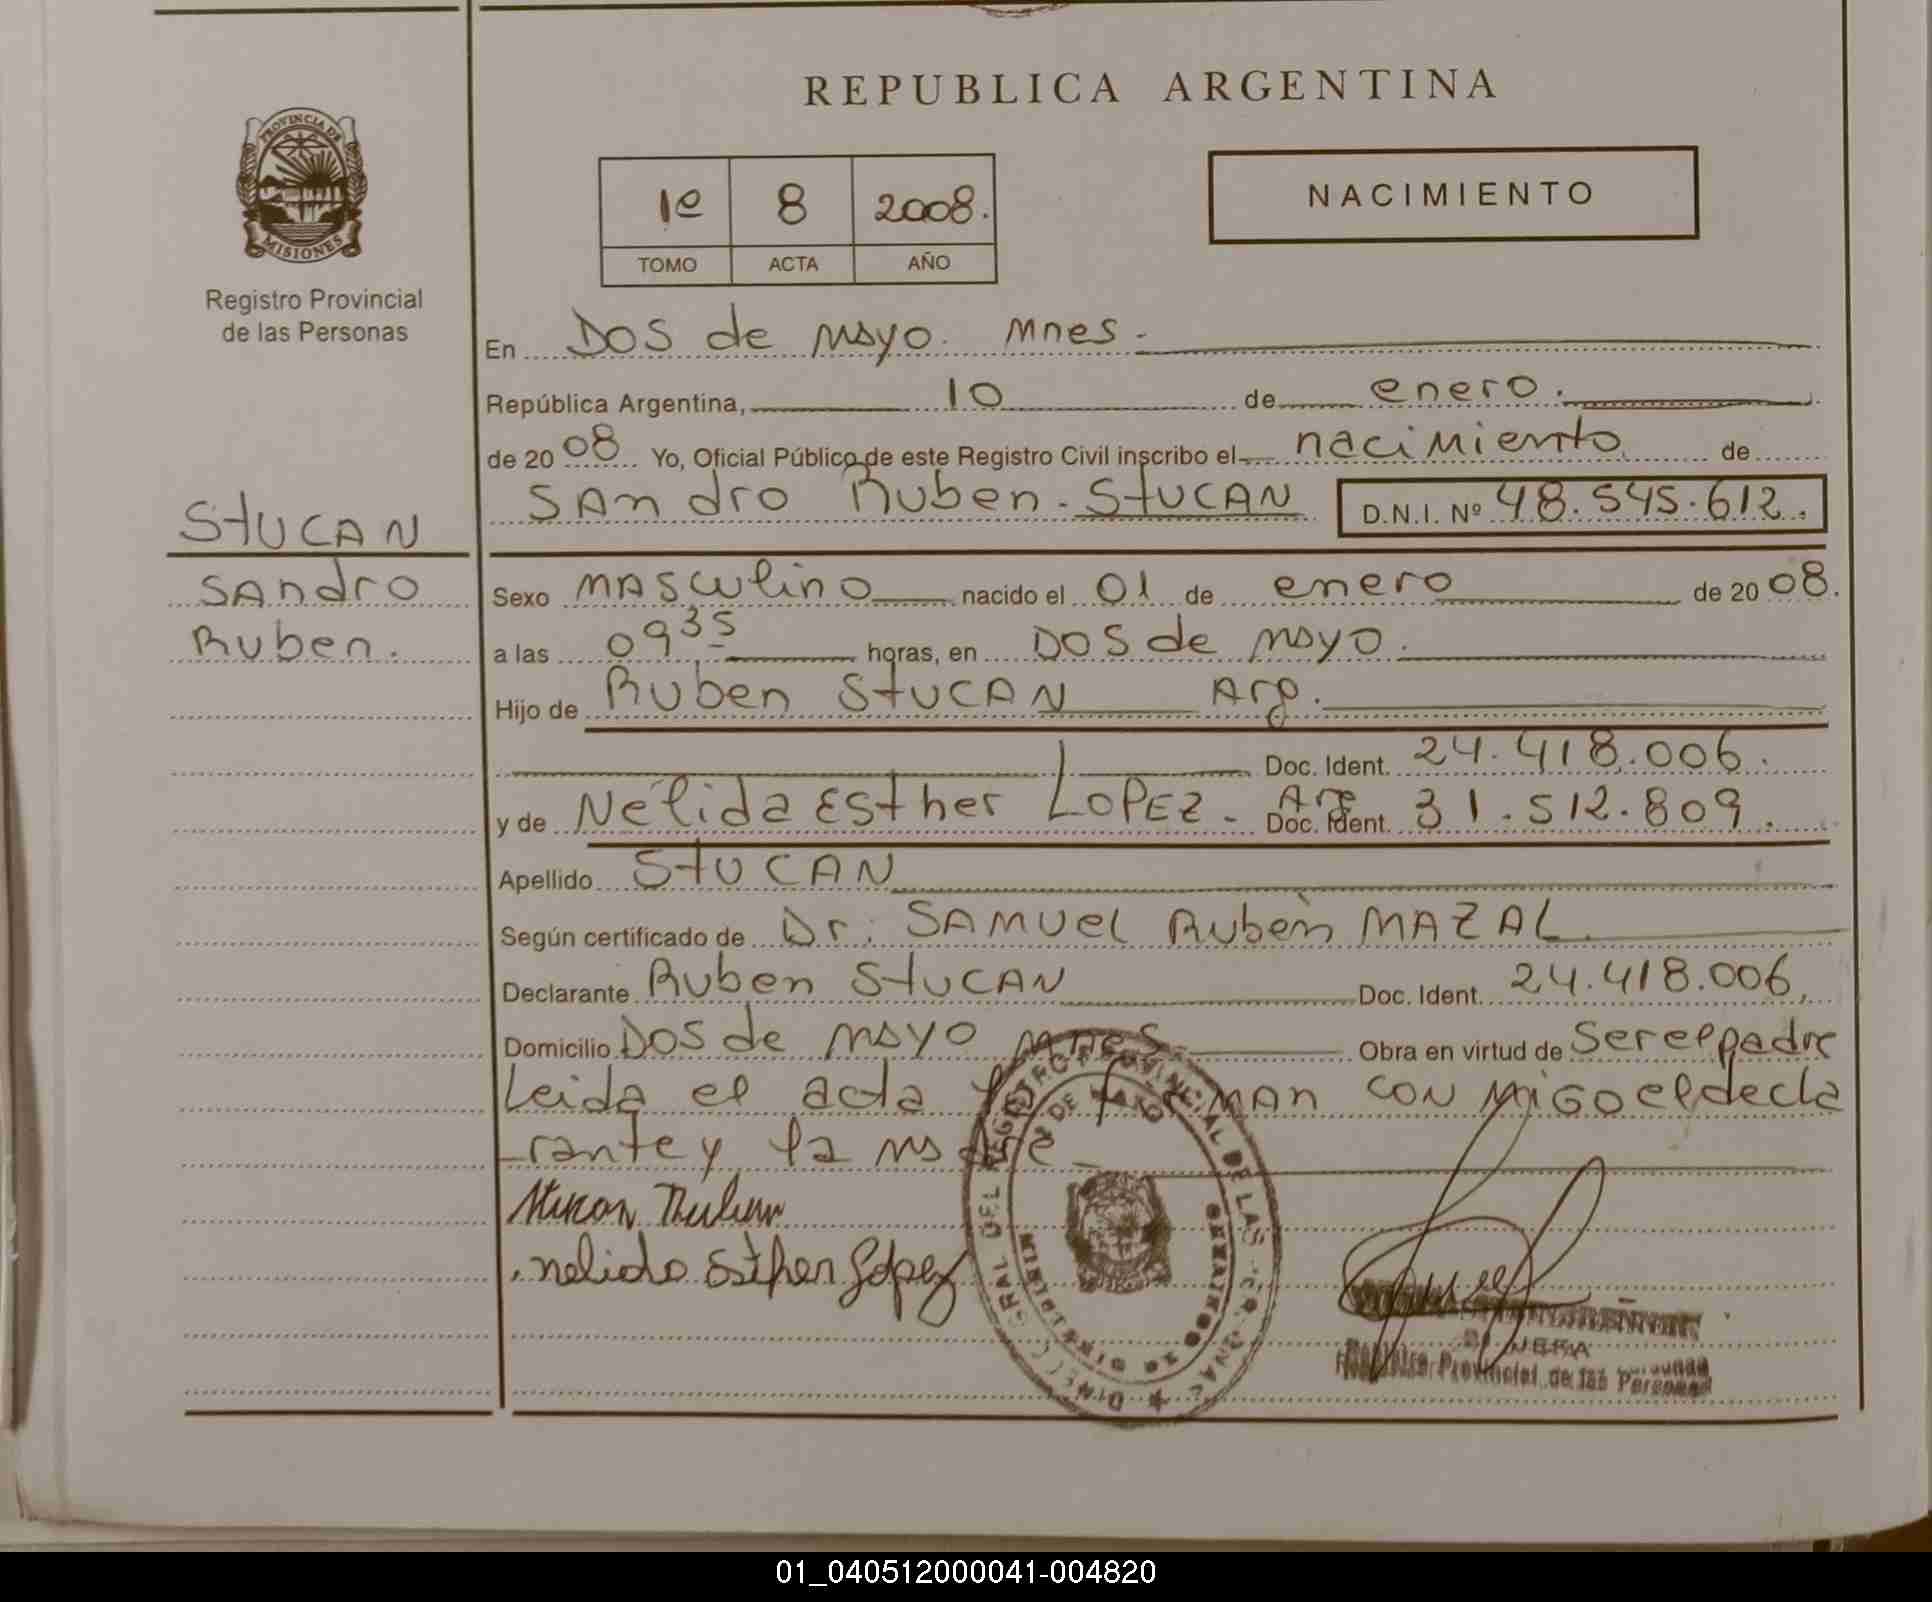 REPUBLICA ARGENTINA
PROVINCIA DE
MISIONES
Registro Provincial
de las Personas
1º 8 2008.
TOMO ACTA AÑO
NACIMIENTO
En Dos de mayo. Mnes.
República Argentina, 10 de enero.
de 2008 Yo, Oficial Público de este Registro Civil inscribo el nacimiento de
SAndro Ruben. StUCAN D.N.I. Nº 48.545.612.
StUCAN
SAndro
Ruben.
Sexo MASculino nacido el 01 de enero de 2008.
a las 09 35 horas, en Dos de mayo.
Hijo de Ruben StUCAN Arg.
Doc. Ident. 24.418.006.
y de Nélida Esther LOPEZ. Arg Doc. Ident. 31.512.809.
Apellido StUCAN
Según certificado de Dr. SAMUEL Rubén MAZAL.
Declarante Ruben StUCAN Doc. Ident. 24.418.006,
Domicilio Dos de mayo Mnes. Obra en virtud de Ser el padre
Leida el acta la firMAN CON MIGO el decla
rante y la madre
nelida Esther López
Registro Provincial de las Personas
01_040512000041-004820